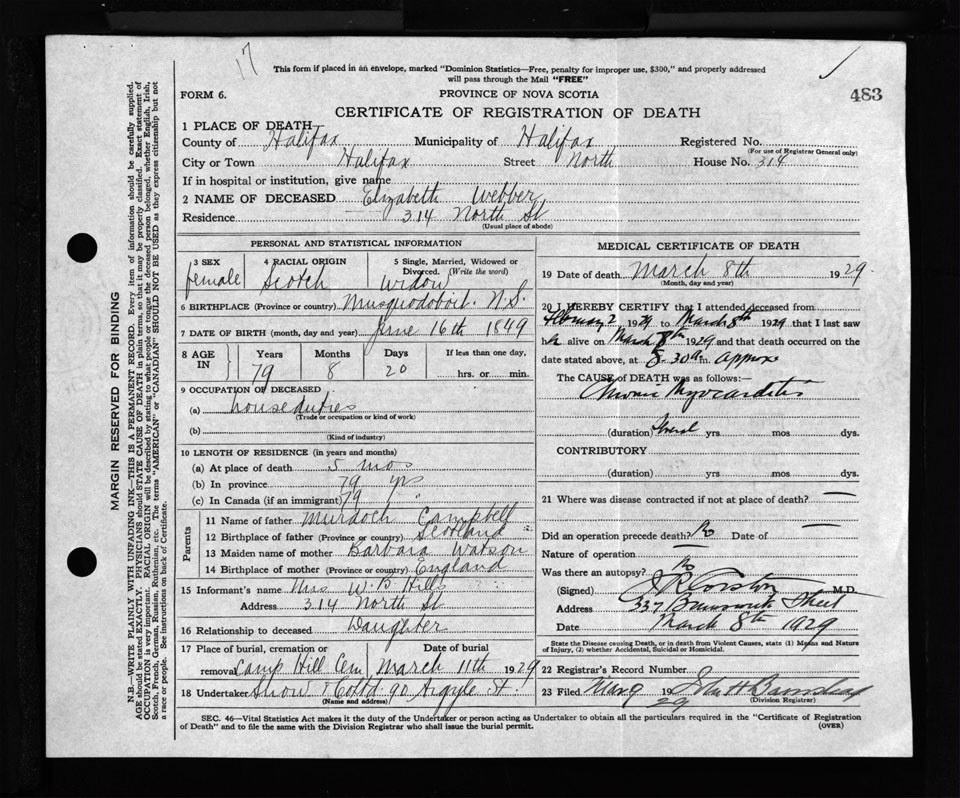 17
This form if placed in an envelope, marked "Dominion Statistics—Free, penalty for improper use, $300," and properly addressed
will pass through the Mail "FREE"
FORM 6.
PROVINCE OF NOVA SCOTIA
483
CERTIFICATE OF REGISTRATION OF DEATH
1 PLACE OF DEATH
County of Halifax Municipality of Halifax Registered No.
(For use of Registrar General only)
City or Town Halifax Street North House No. 314
If in hospital or institution, give name
2 NAME OF DECEASED Elizabeth Webber
Residence 314 North St
(Usual place of abode)
PERSONAL AND STATISTICAL INFORMATION
3 SEX 4 RACIAL ORIGIN 5 Single, Married, Widowed or
Divorced. (Write the word)
female Scotch Widow
6 BIRTHPLACE (Province or country) Musquodoboit. N.S.
7 DATE OF BIRTH (month, day and year) June 16th 1849
8 AGE IN Years Months Days If less than one day,
79 8 20 hrs. or min.
9 OCCUPATION OF DECEASED
(a) house duties
(Trade or occupation or kind of work)
(b)
(Kind of industry)
10 LENGTH OF RESIDENCE (in years and months)
(a) At place of death 5 mos
(b) In province 79 yrs
(c) In Canada (if an immigrant) 79 "
Parents
11 Name of father Murdoch Campbell
12 Birthplace of father (Province or country) Scotland
13 Maiden name of mother Barbara Watson
14 Birthplace of mother (Province or country) England
15 Informant's name Mrs W. B. Hills
Address 314 North St
16 Relationship to deceased Daughter
17 Place of burial, cremation or Date of burial
removal Camp Hill Cem March 11th 1929
18 Undertaker Snow & Co Ltd 90 Argyle St.
(Name and address)
MEDICAL CERTIFICATE OF DEATH
19 Date of death March 8th 1929.
(Month, day and year)
20 I HEREBY CERTIFY that I attended deceased from
February 2, 1929 to March 8th 1929 that I last saw
her alive on March 8th 1929 and that death occurred on the
date stated above, at 8.30 a.m. approx
The CAUSE of DEATH was as follows:
Chronic Myocarditis
(duration) Several yrs mos dys.
CONTRIBUTORY
(duration) yrs mos dys.
21 Where was disease contracted if not at place of death? —
Did an operation precede death? No Date of —
Nature of operation —
Was there an autopsy? No
(Signed) M.D.
Address 337 Brunswick Street
Date March 8th 1929
State the Disease Causing Death, or in death from Violent Causes, state (1) Means and Nature
of Injury, (2) whether Accidental, Suicidal or Homicidal.
22 Registrar's Record Number
23 Filed Mar 9 1929
(Division Registrar)
SEC. 46—Vital Statistics Act makes it the duty of the Undertaker or person acting as Undertaker to obtain all the particulars required in the "Certificate of Registration
of Death" and to file the same with the Division Registrar who shall issue the burial permit.
(OVER)
MARGIN RESERVED FOR BINDING
N.B.—WRITE PLAINLY WITH UNFADING INK—THIS IS A PERMANENT RECORD. Every item of information should be carefully supplied.
AGE should be stated EXACTLY. PHYSICIANS should STATE CAUSE OF DEATH in plain terms, so that it may be properly classified. Exact statement of
OCCUPATION is very important. RACIAL ORIGIN will be described by stating to what people or tongue the deceased person belonged, whether English, Irish,
Scotch, French, German, Russian, Ruthenian, etc. The terms "AMERICAN" or "CANADIAN" SHOULD NOT BE USED as they express citizenship but not
a race or people. See instructions on back of Certificate.